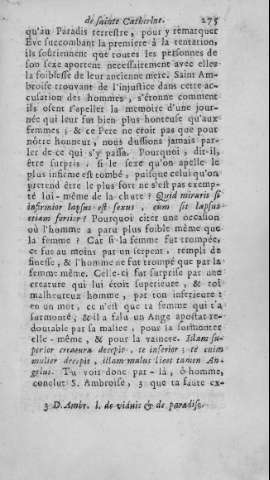 de sainte Catherine. 275
qu'au Paradis terrestre, pour y remarquer
Eve succombant la premiere à la tentation,
ils soûtiennent que toutes les personnes de
son sexe aportent necessairement avec elles
la foiblesse de leur ancienne mere. Saint Am-
broise trouvant de l'injustice dans cette ac-
cusation des hommes, s'étonne comment
ils osent rapeller la memoire d'une jour-
née qui leur fut bien plus honteuse qu'aux
femmes ; & ce Pere ne croit pas que pour
nôtre honneur, nous dussions jamais par-
ler de ce qui s'y passa. Pourquoi, dit-il,
être surpris, si le sexe qu'on apelle le
plus infirme est tombé, puisque celui qu'on
pretend être le plus fort ne s'est pas exemp-
té lui-même de la chute ? Quid miraris si
infirmior lapsus est sexus, cum sit lapsus
etiam fortior ? Pourquoi citer une occasion
où l'homme a paru plus foible même que
la femme ? Car si la femme fut trompée,
ce fut au moins par un serpent, rempli de
finesse, & l'homme ne fut trompé que par la
femme même. Celle-ci fut surprise par une
creature qui lui étoit superieure, & toi
malheureux homme, par ton inferieure :
en un mot, ce n'est que ta femme qui t'a
surmonté ; & il a falu un Ange apostat re-
doutable par sa malice, pour la surmonter
elle-même, & pour la vaincre. Illam su-
perior creatura decepit, te inferior ; te enim
mulier decepit, illam malus licet tamen An-
gelus. Tu vois donc par-là, ô homme,
conclut S. Ambroise, 3 que ta faute ex-
3 D. Ambr. l. de viduis & de paradiso.